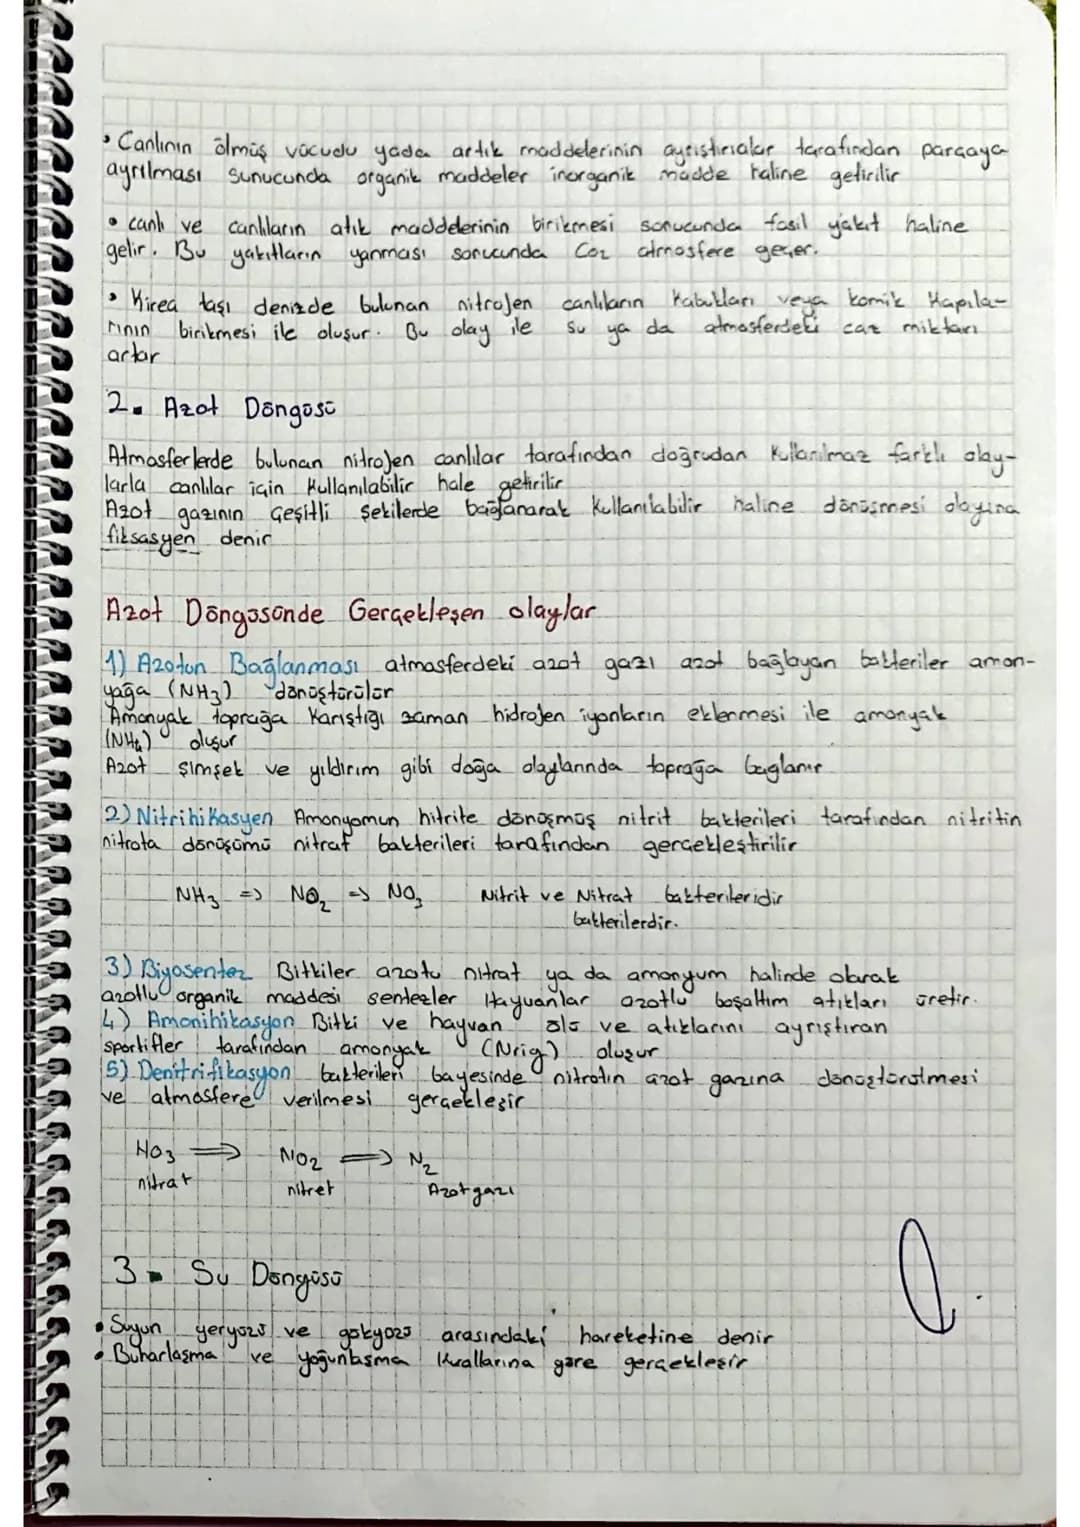 Canlının ölmüş vücudu yada artık maddelerinin ayrıştırıcılar tarafından parçaya
ayrılması sunucunda organik maddeler inorganik madde haline getirilir
• canlı ve canlıların atık maddelerinin birikmesi sonucunda fosil yakıt haline
gelir. Bu yakıtların yanması sonucunda CO2 atmosfere geçer.
• Kireç taşı denizde bulunan nitrojen canlıların kabukları veya komik Kapıla-
rının birikmesi ile oluşur. Bu olay ile su ya da atmosferdeki miktarı
artar
2. Azot Döngüsü
Atmosferlerde bulunan nitrojen canlılar tarafından doğrudan Kullanılmaz farklı olay-
larla canlılar için Kullanılabilir hale getirilir
Azot gazının Çeşitli Şekilerde bağlanarak Kullanılabilir haline dönüşmesi olayına
fiksasyen denir
Azot Döngüsünde Gerçekleşen olaylar
1) Azotun Bağlanması atmosferdeki azot gazı azot bağlayan bakteriler amon-
yağa (NH3) dönüştürülür
Amonyak toprağa Karıştığı zaman hidrojen iyonların eklenmesi ile amonyak
(NH4) oluşur
Azot şimşek ve yıldırım gibi doğa olaylarında toprağa bağlanır
2) Nitrihikasyen Amonyomun hitrite dönüşmüş nitrit bakterileri tarafından nitritin
nitrata dönüşümü nitrat bakterileri tarafından gerçekleştirilir
NH3 => NO2 => NO3 Nitrit ve Nitrat bakterileridir
bakterilerdir.
3) Biyosentez Bitkiler azotu nitrat ya da amonyum halinde olarak
azotlu organik maddesi sentezler Hayvanlar azotlu boşaltım atıkları üretir.
4) Amonihikasyon Bitki ve hayvan ölü ve atıklarını ayrıştıran
sportifler tarafından amonyak oluşur
5) Denitrifikasyon bakterileri bayesinde nitratın azot gazına dönüştürülmesi
ve atmosfere verilmesi gerçekleşir
NO3 => NO2 => N2
nitrat nitret Azot gazı
3. Su Döngüsü
• Suyun yeryüzü ve gökyüzü arasındaki hareketine denir
• Buharlaşma ve yoğunlaşma Kurallarına göre gerçekleşir